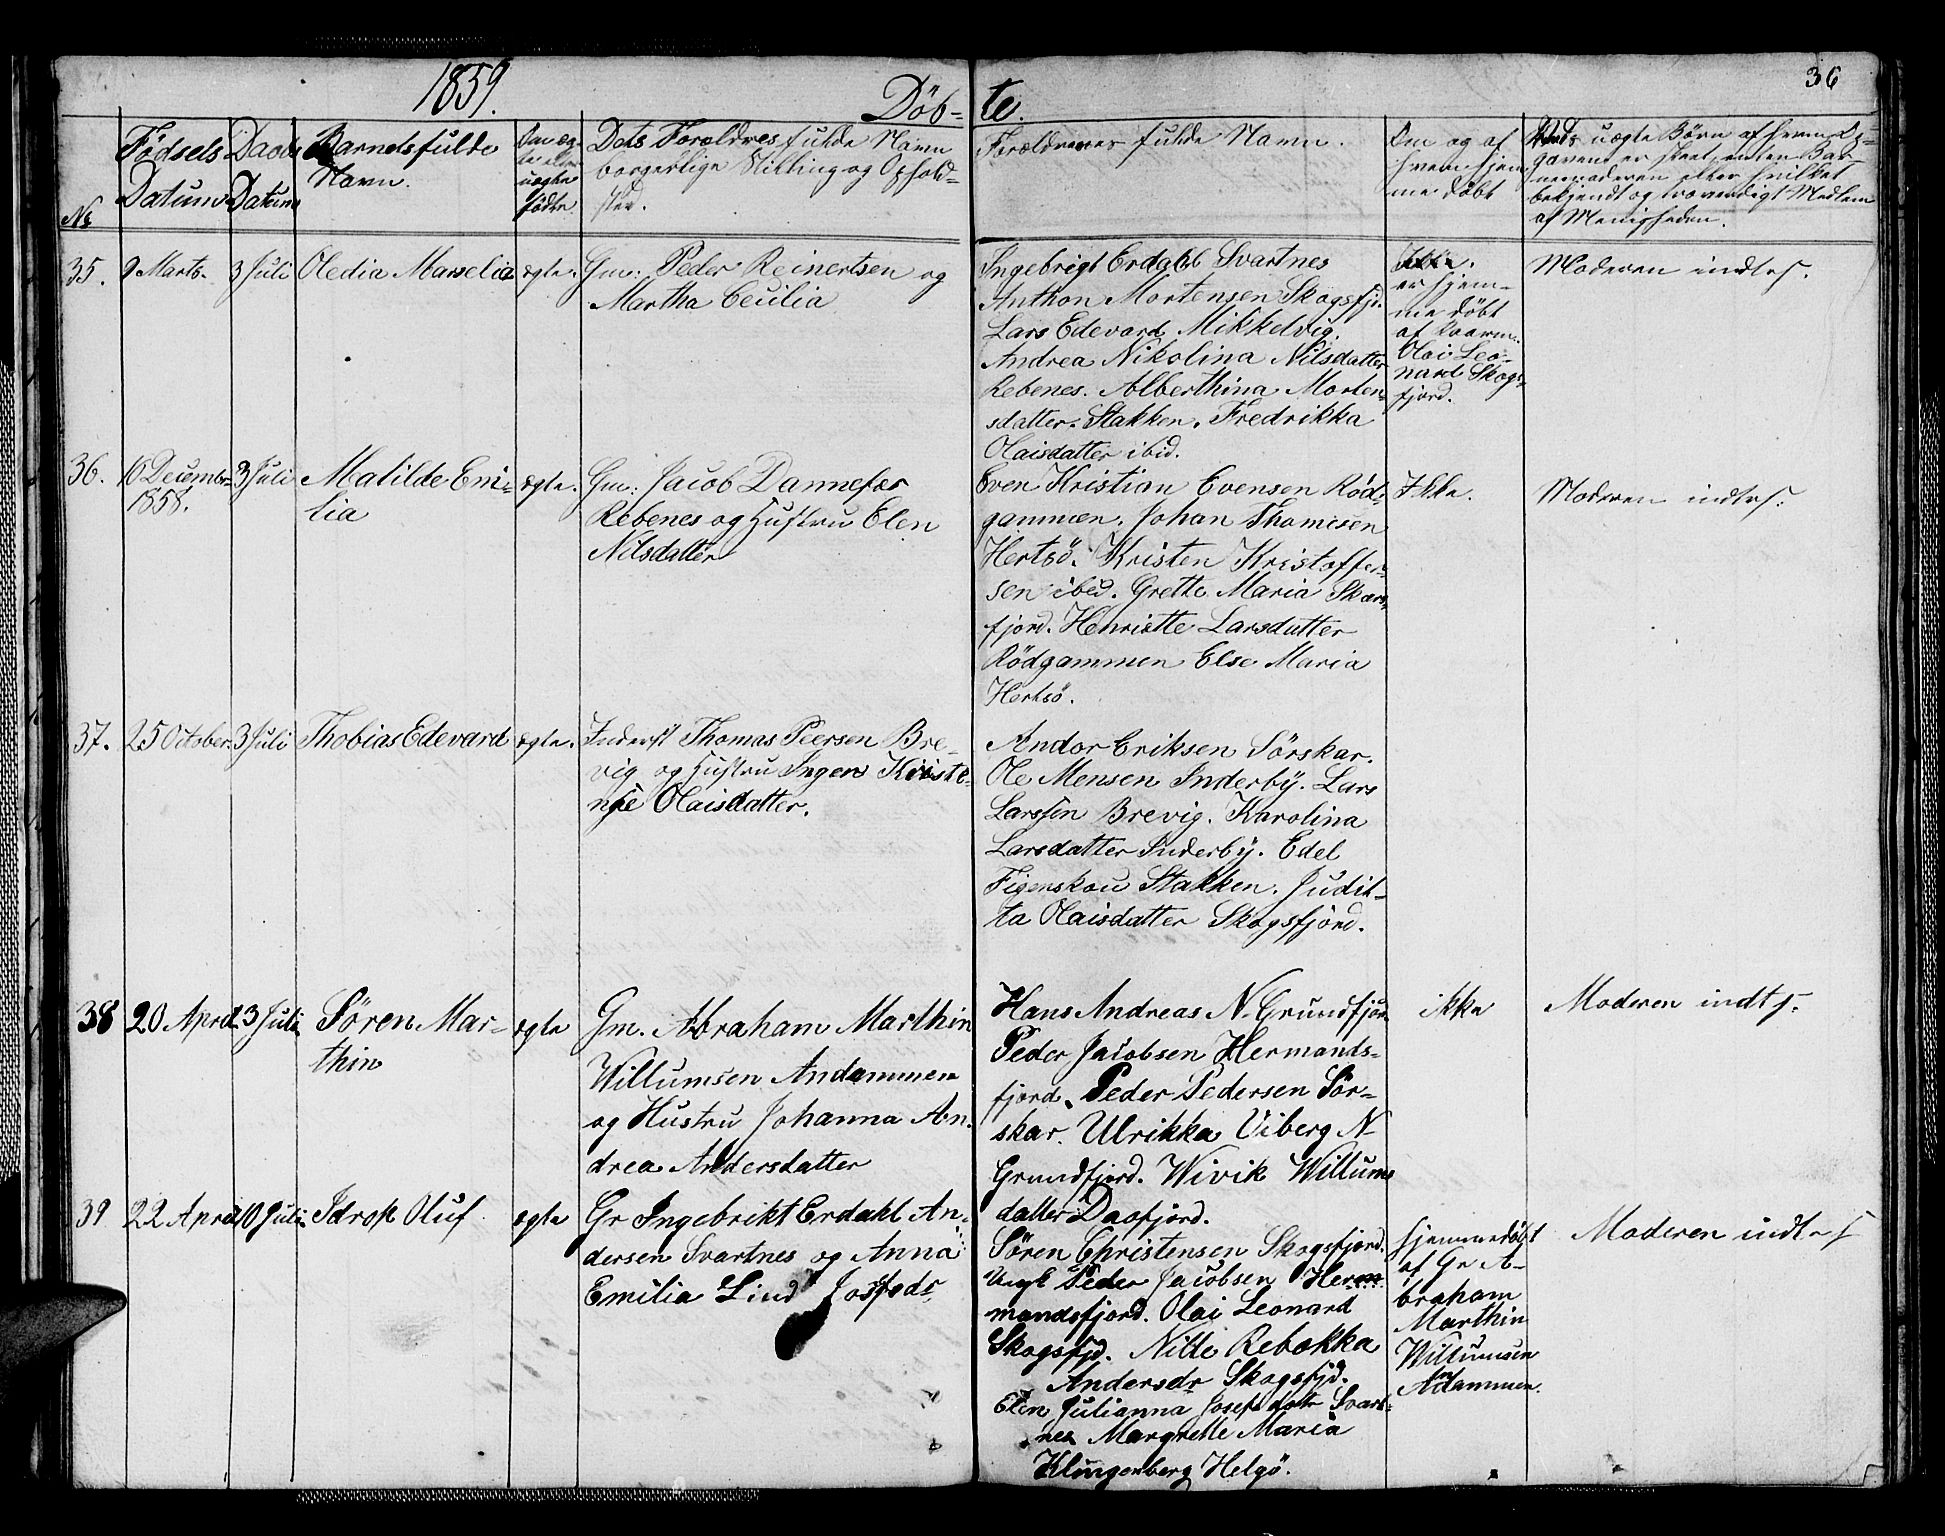 1859.
Döb-
te.
36
№
Fødsels
Datum
Daabs
Datum
Barnets fulde
Navn.
Om æg-
te eller
uægte
födte.
Dets Forældres fulde Navn
borgerlige Stilling og Ophold-
sted.
fulde Navn.
Om og af
hvem hjem-
me döbt
uægte Börn af hvem
er skeet, enten Bar-
nemoderen eller hvilket
bekjendt og troværdigt Medlem
af Menigheden.
35.
9 Marts.
3 Juli
Oledia Marselia
ægte.
Gm: Peder Reinertsen og
Martha Cecilia
Ingebrigt Erdahl Svartnes
Anthon Mortensen Skogsfj.
Lars Edevard Mikkelvig.
Andrea Nikolina Nilsdatter
Rebenes. Alberthina Morten-
sdatter. Stakken. Fredrikka
Olaisdatter ibid.
er hjem-
me döbt
af
Olai Leo-
nard Skogs-
fjord.
Moderen indtef.
36.
10 December
1858.
3 Juli
Matilde Emi-
lia
ægte.
Gm: Jacob Dannefær
Rebenes og Hustru Elen
Nilsdatter
Even Kristian Evensen Röd-
gammen. Johan Thomesen
Hertsö. Kristen Kristoffer-
sen ibid. Grethe Maria Skars-
fjord. Henriette Larsdatter
Rödgammen Else Maria
Hertsö.
Ikke.
Moderen indtef.
37.
25 October
3 Juli
Thobias Edevard
ægte.
Inderst Thomas Peersen Bre-
vig og Hustru Ingen Kriste-
nse Olaisdatter.
Andor Eriksen Sörskar.
Ole Mensen Inderby. Lars
Larssen Brevig. Karolina
Larsdatter Inderby. Edel
Figenskou Stakken. Judit-
ta Olaisdatter Skogsfjord.
38
20 April
3 Juli
Sören Mar-
thin
ægte
Gm. Abraham Marthin
Willumsen Andammen
og Hustru Johanna An-
drea Andersdatter
Hans Andreas N. Grundfjor
Peder Jacobsen Hermands-
fjord. Peder Pedersen Sör-
skar. Ulrikka Viberg N
Grundfjord. Wivik Willums
datter Daofjord.
ikke
Moderen indtf.
39
22 April
10 Juli
Idrok Oluf
ægte
Gr Ingebrikt Erdahl An-
dersen Svartnes og Anna
Emilia Lind Josefsdr
Sören Christensen Skogsfjord.
Ungk Peder Jacobsen Her-
mandsfjord. Olai Leonard
Skogsfjd. Nille Rebekka
Andersdr Skogsfjd.
Elen Julianna Josefsdatr Svart-
nes Margrethe Maria
Klingenberg Helgö.
hjemmedöbt
af Gr A-
braham
Marthin
Willumsen
Adammen.
Moderen indtef